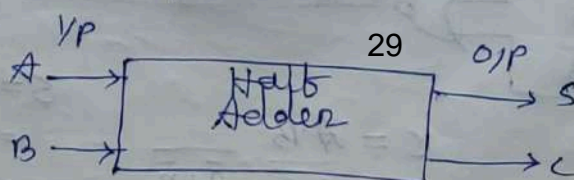 I/P
29
O/P
A
Half
S
Adder
B
C